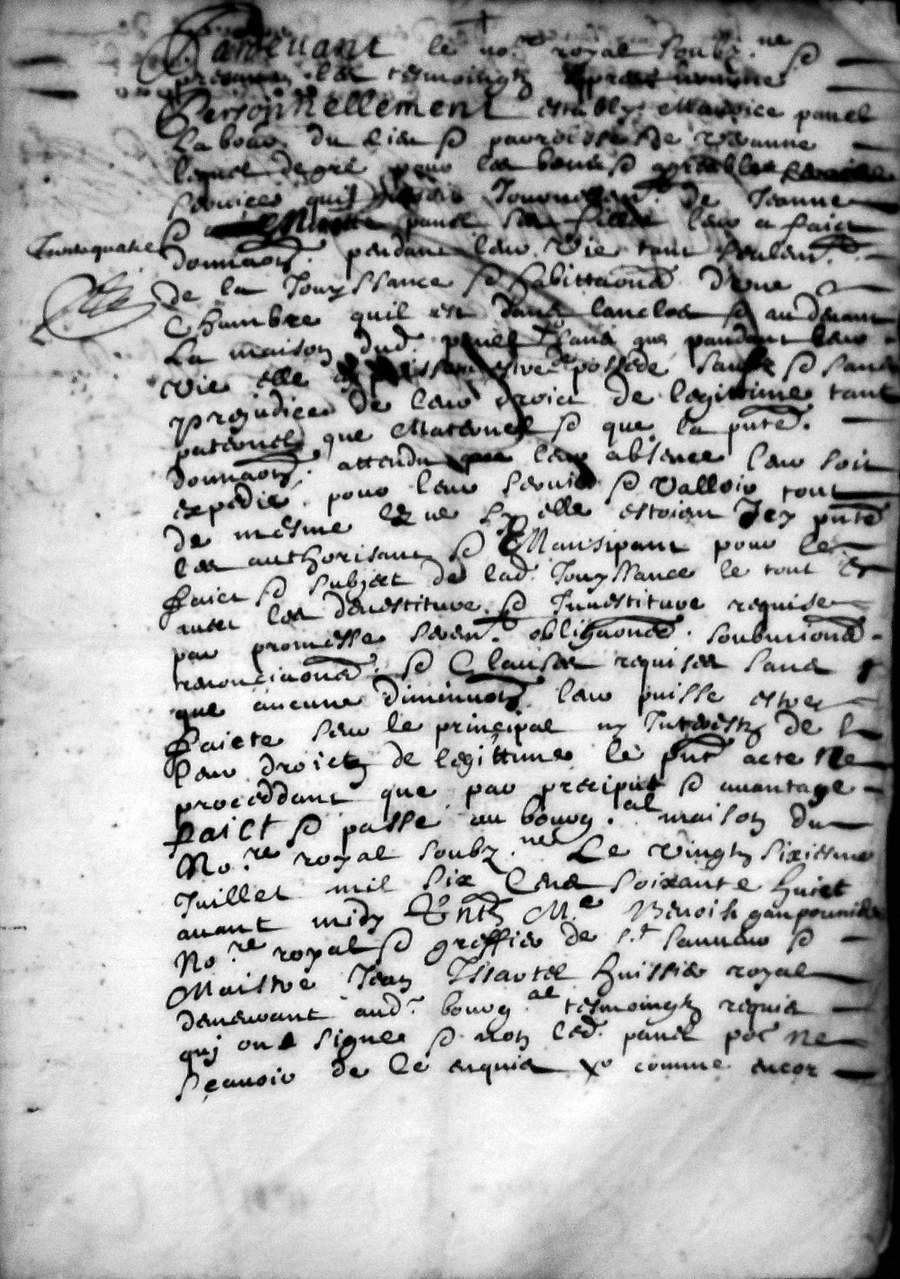 Pardevant le no.re royal soubz.ne &
presans les tesmoingtz
Personnellement estably Maurice panel
labour du lieu & parroisse de
lequel de gré pour les bons & agreables
services quil Journellem.t de Jeanne
& panel ses filles leur a faict
donnaon pendant leur vie tant seulem.t
de la Jouyssance & habittaons dune
Chambre quil est dans lanclos & au devant
La maison dud panel sans que pandant leur
vie elle estre possede sauf & sans
prejudice de leur droict de legittime tant
paternel que Maternel & que la pnte
donnaon attendu leur absence leur soit
expedié pour leur servir & valloir tout
de mesme que sy elle estoient Icy pnte
les authorisant & Emansipant pour le
faict & subject de lad Jouyssance le tout
avec les devestiture & Investiture requise
par promesse serem.t obligaons soubmions
renonciaons & Clauses requises sans
que aucune diminuon leur puisse estre
faicte sur le principal ny Interestz de
leur droictz de legittime le pnt acte ne
proceddant que par preciput & avantage
faict & passé au bourg.al maison du
No.re royal soubz.ne Le vingtz sixiesme
Juillet mil six Cens soixante huict
avant midy Pntz M.e Benoist
No.re royal & greffier de s.t sauveur &
Maistre Jean Issartel huissier royal
demeurant aud. bourg.al tesmoingtz requis
quj ont signe & non led. panel po.r ne
sçavoir de ce enquis comme encor